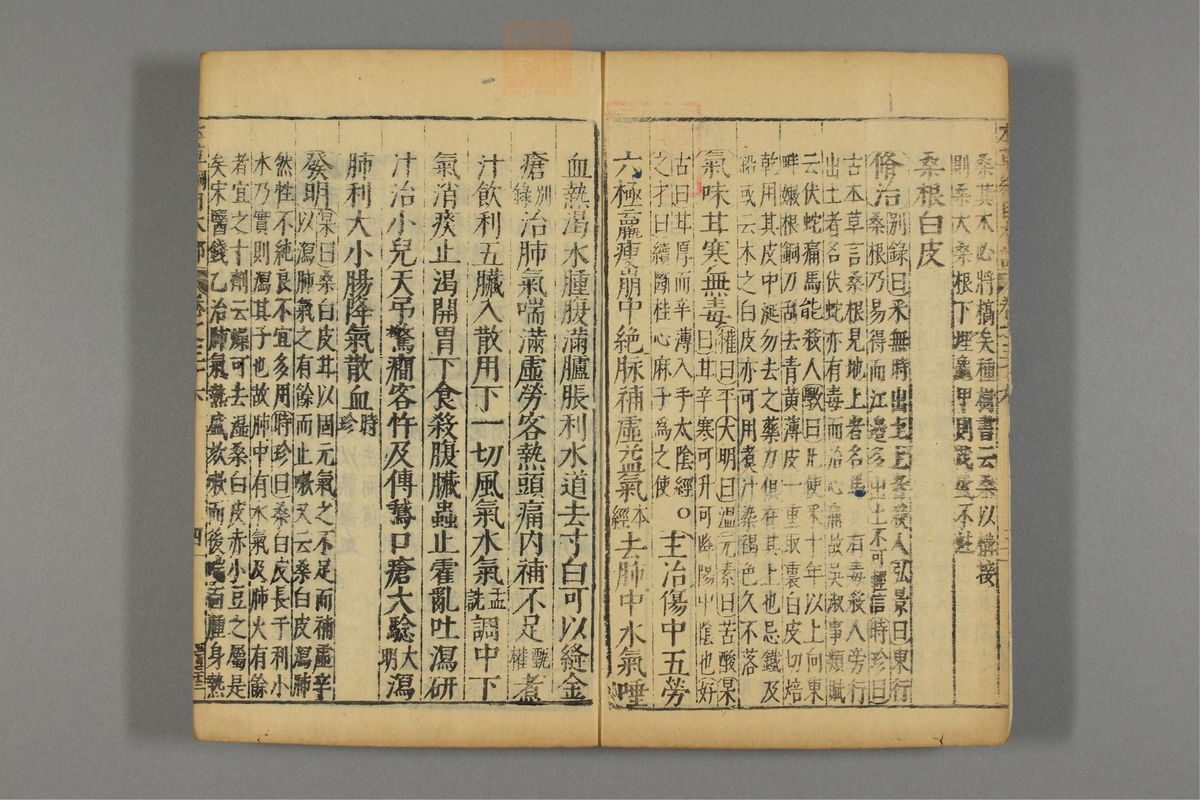 桑其木必將槁矣種樹書云桑以構接
則桑大桑根下埋龜甲則茂盛不蛀
桑根白皮
脩治别錄曰采無時出土上者殺人弘景曰東行
桑根乃易得而江邊多出土不可輕信時珍曰
古本草言桑根見地上者名馬有毒殺人旁行
出土者名伏蛇亦有毒而治心痛故吳淑事類賦
云伏蛇痛馬能殺人斅曰凡使采十年以上向東
畔嫩根銅刀刮去青黄薄皮一重取裏白皮切焙
乾用其皮中涎勿去之藥力俱在其上也忌鐵及
鉛或云木之白皮亦可用煮汁染褐色久不落
氣味甘寒無毒權曰平大明曰溫元素曰苦酸杲
曰甘辛寒可升可降陽中陰也好
古曰甘厚而辛薄入手太陰經
之才曰續斷桂心麻子為之使
主治傷中五勞
六極羸瘦崩中絶脉補虚益氣本經去肺中水氣唾
血熱渴水腫腹滿臚脹利水道去寸白可以縫金
瘡别錄治肺氣喘滿虚勞客熱頭痛内補不足甄權煮
汁飲利五臟入散用下一切風氣水氣孟詵調中下
氣消痰止渴開胃下食殺腹臟蟲止霍亂吐瀉研
汁治小兒天弔驚癎客忤及傅鵞口瘡大驗大明瀉
肺利大小腸降氣散血時珍
發明杲曰桑白皮甘以固元氣之不足而補虚辛
以瀉肺氣之有餘而止嗽又云桑白皮瀉肺
然性不純良不宜多用時珍曰桑白皮長于利小
水乃實則瀉其子也故肺中有水氣及肺火有餘
者宜之十劑云燥可去濕桑白皮赤小豆之屬是
矣宋醫錢乙治肺氣熱盛欬嗽而後喘面腫身熱